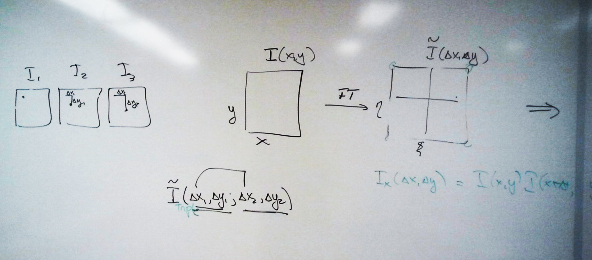 I₁ I₂ I₃
Δx Δy Δx Δy
I(x,y)
y
x
FT
Ĩ(Δx,Δy)
η
ξ
⇒
Ĩ(Δx₁,Δy₁; Δx₂,Δy₂)
Iₓ(Δx,Δy) = I(x,y) I(x+Δx,